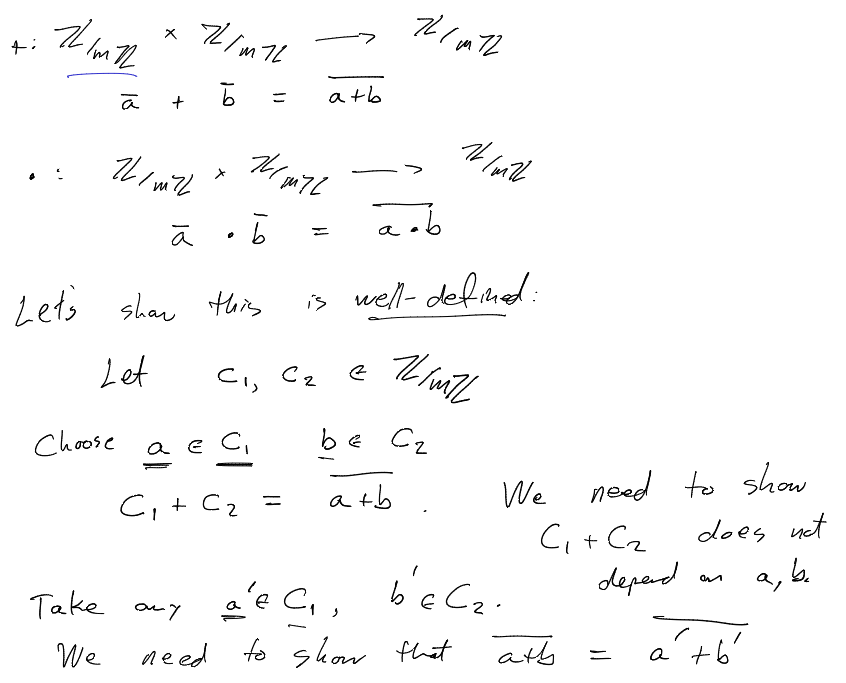 +: ℤ/mℤ × ℤ/mℤ → ℤ/mℤ
ā + b̄ = \overline{a+b}
• : ℤ/mℤ × ℤ/mℤ → ℤ/mℤ
ā • b̄ = \overline{a•b}
Let's show this is well-defined:
Let C₁, C₂ ∈ ℤ/mℤ
Choose a ∈ C₁ b ∈ C₂
C₁ + C₂ = \overline{a+b} .
We need to show
C₁ + C₂ does not
depend on a, b.
Take any a' ∈ C₁, b' ∈ C₂.
We need to show that \overline{a+b} = \overline{a'+b'}